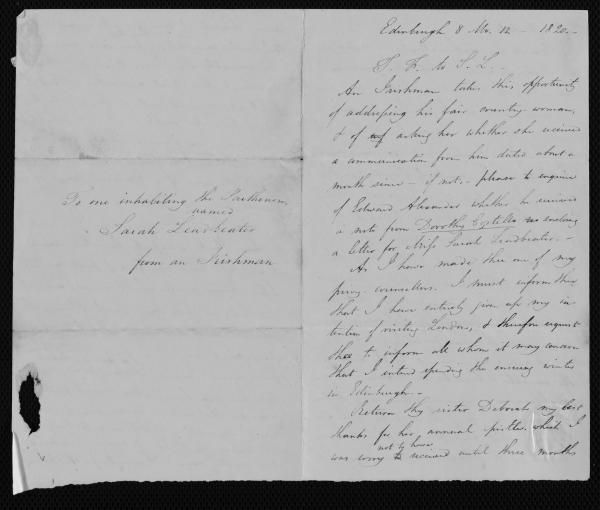 To one inhabiting the Parthenon,
named
Sarah Leadbeater
from an Irishman
Edinburgh 8 Mo. 12 - 1820.-
T. F. to S. L. -
An Irishman takes this opportunity
of addressing his fair country-woman,
& of asking her whether she received
a communication from him dated about a
month since - if not, - please to enquire
of Edward Alexander whether he received
a note from Dorothy Costello enclosing
a letter for Miss Sarah Leadbeater. -
As I have made thee one of my
privy-counsellors, I must inform thee
that I have entirely given up my in
tention of visiting London, & therefore request
thee to inform all whom it may concern
that I intend spending the ensuing winter
in Edinburgh. -
Return thy sister Deborah my best
thanks for her annual epistles which I
not to have
was sorry received until three months